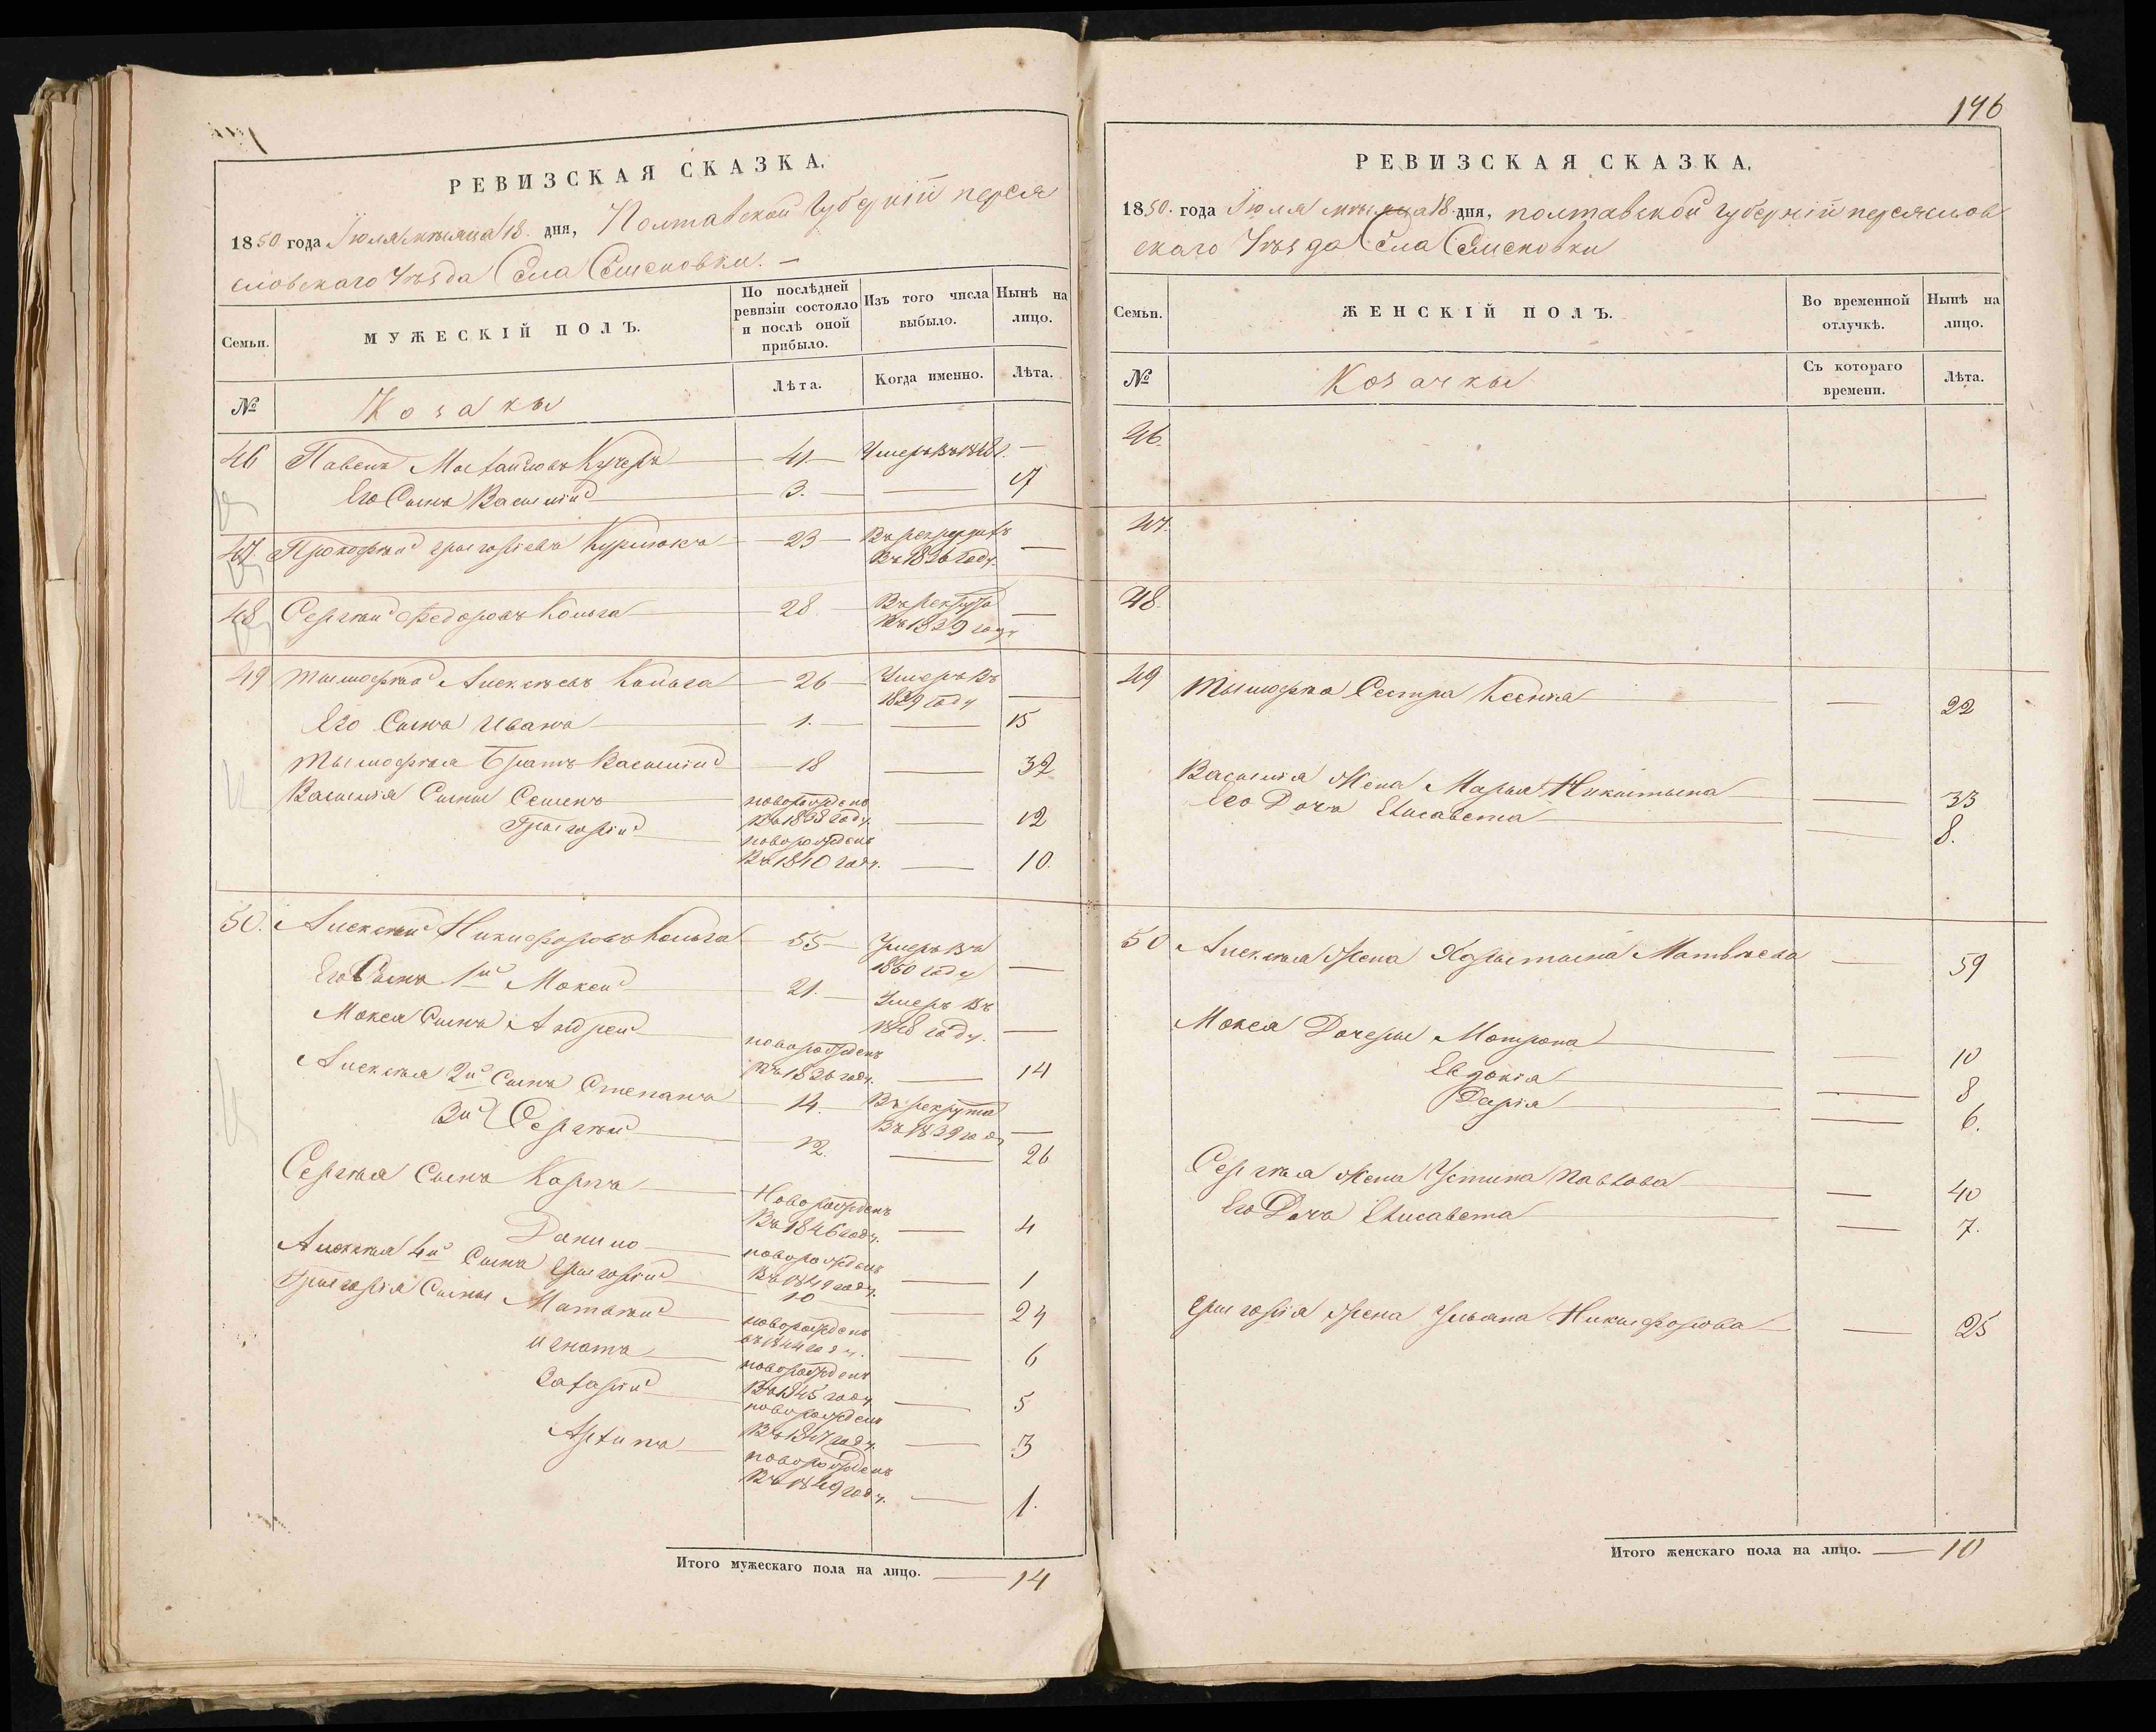 РЕВИЗСКАЯ СКАЗКА.
1850 года Іюля мѣсяца 18. дня, Полтавской Губерніи перея
словскаго Уѣзда Села Семеновки. —
Семьи.
МУЖЕСКІЙ ПОЛЪ.
По послѣдней ревизіи состояло и послѣ оной прибыло.
Изъ того числа выбыло.
Нынѣ на лицо.
№
Козакы
Лѣта.
Когда именно.
Лѣта.
46 Павелъ Кучеръ — 41. — Умеръ въ г. —
Его Сынъ Василій — 3. —
47. Прокофій Григоріевъ — 23 — Въ рекруты —
Въ 1826 году.
48 Сергѣй Федоровъ Кольга — 28. — Въ рекруты —
Въ 1829 году
49 Тымофѣй Алексѣевъ Кольга — 26 — Умеръ Въ
1829 году —
Его Сынъ Иванъ — 1. — 15
Тымофѣя Братъ Василій — 18 — 32
Василія Сыны Семенъ — новорожденъ
Въ 1838 году. — 12
Григорій — новорожденъ
Въ 1840 году. — 10.
50. Алексѣй Никифоровъ Кольга — 55 — Умеръ Въ
1850 году —
Его Сынъ 1й Мокей — 21. — Умеръ Въ
1848 году. —
Мокея Сынъ Андрей — новорожденъ
Въ 1836 году. — 14
Алексѣя 2й Сынъ Степанъ — 14. — Въ рекруты
Въ 1839 году —
3й Сергѣй — 12. — 26
Сергѣя Сынъ Карпъ — Новорожденъ
Въ 1846 году. — 4
Данило — новорожденъ
Въ 1849 году. — 1
Алексѣя 4й Сынъ Григорій — 10 — 24
Григорія Сыны Матвѣй — новорожденъ
въ 1844 году. — 6
Игнатъ — новорожденъ
Въ 1845 году — 5
Захарій — новорожденъ
Въ 1847 году. — 3
Архипъ — новорожденъ
Въ 1849 году. — 1.
Итого мужескаго пола на лицо. — 14
146
РЕВИЗСКАЯ СКАЗКА.
1850. года Іюля мѣсяца 18. дня, полтавской губерніи переяслов
скаго Уѣзда Села Семеновки
Семьи.
ЖЕНСКІЙ ПОЛЪ.
Во временной отлучкѣ.
Нынѣ на лицо.
№
Козачкы
Съ котораго времени.
Лѣта.
46.
47.
48.
49 Тымофѣя Сестра Ксенія — 22
Василія Жена Марья Никитына — 33
Его Дочь Елисавета — 8.
50 Алексѣя Жена Харытына Матвѣева — 59
Мокея Дочеры Мотрона — 10
Евдокія — 8
Дарія — 6.
Сергѣя Жена Устина Павлова — 40
Его Дочь Елисавета — 7.
Григорія Жена Ульяна Никифорова — 25
Итого женскаго пола на лицо. — 10